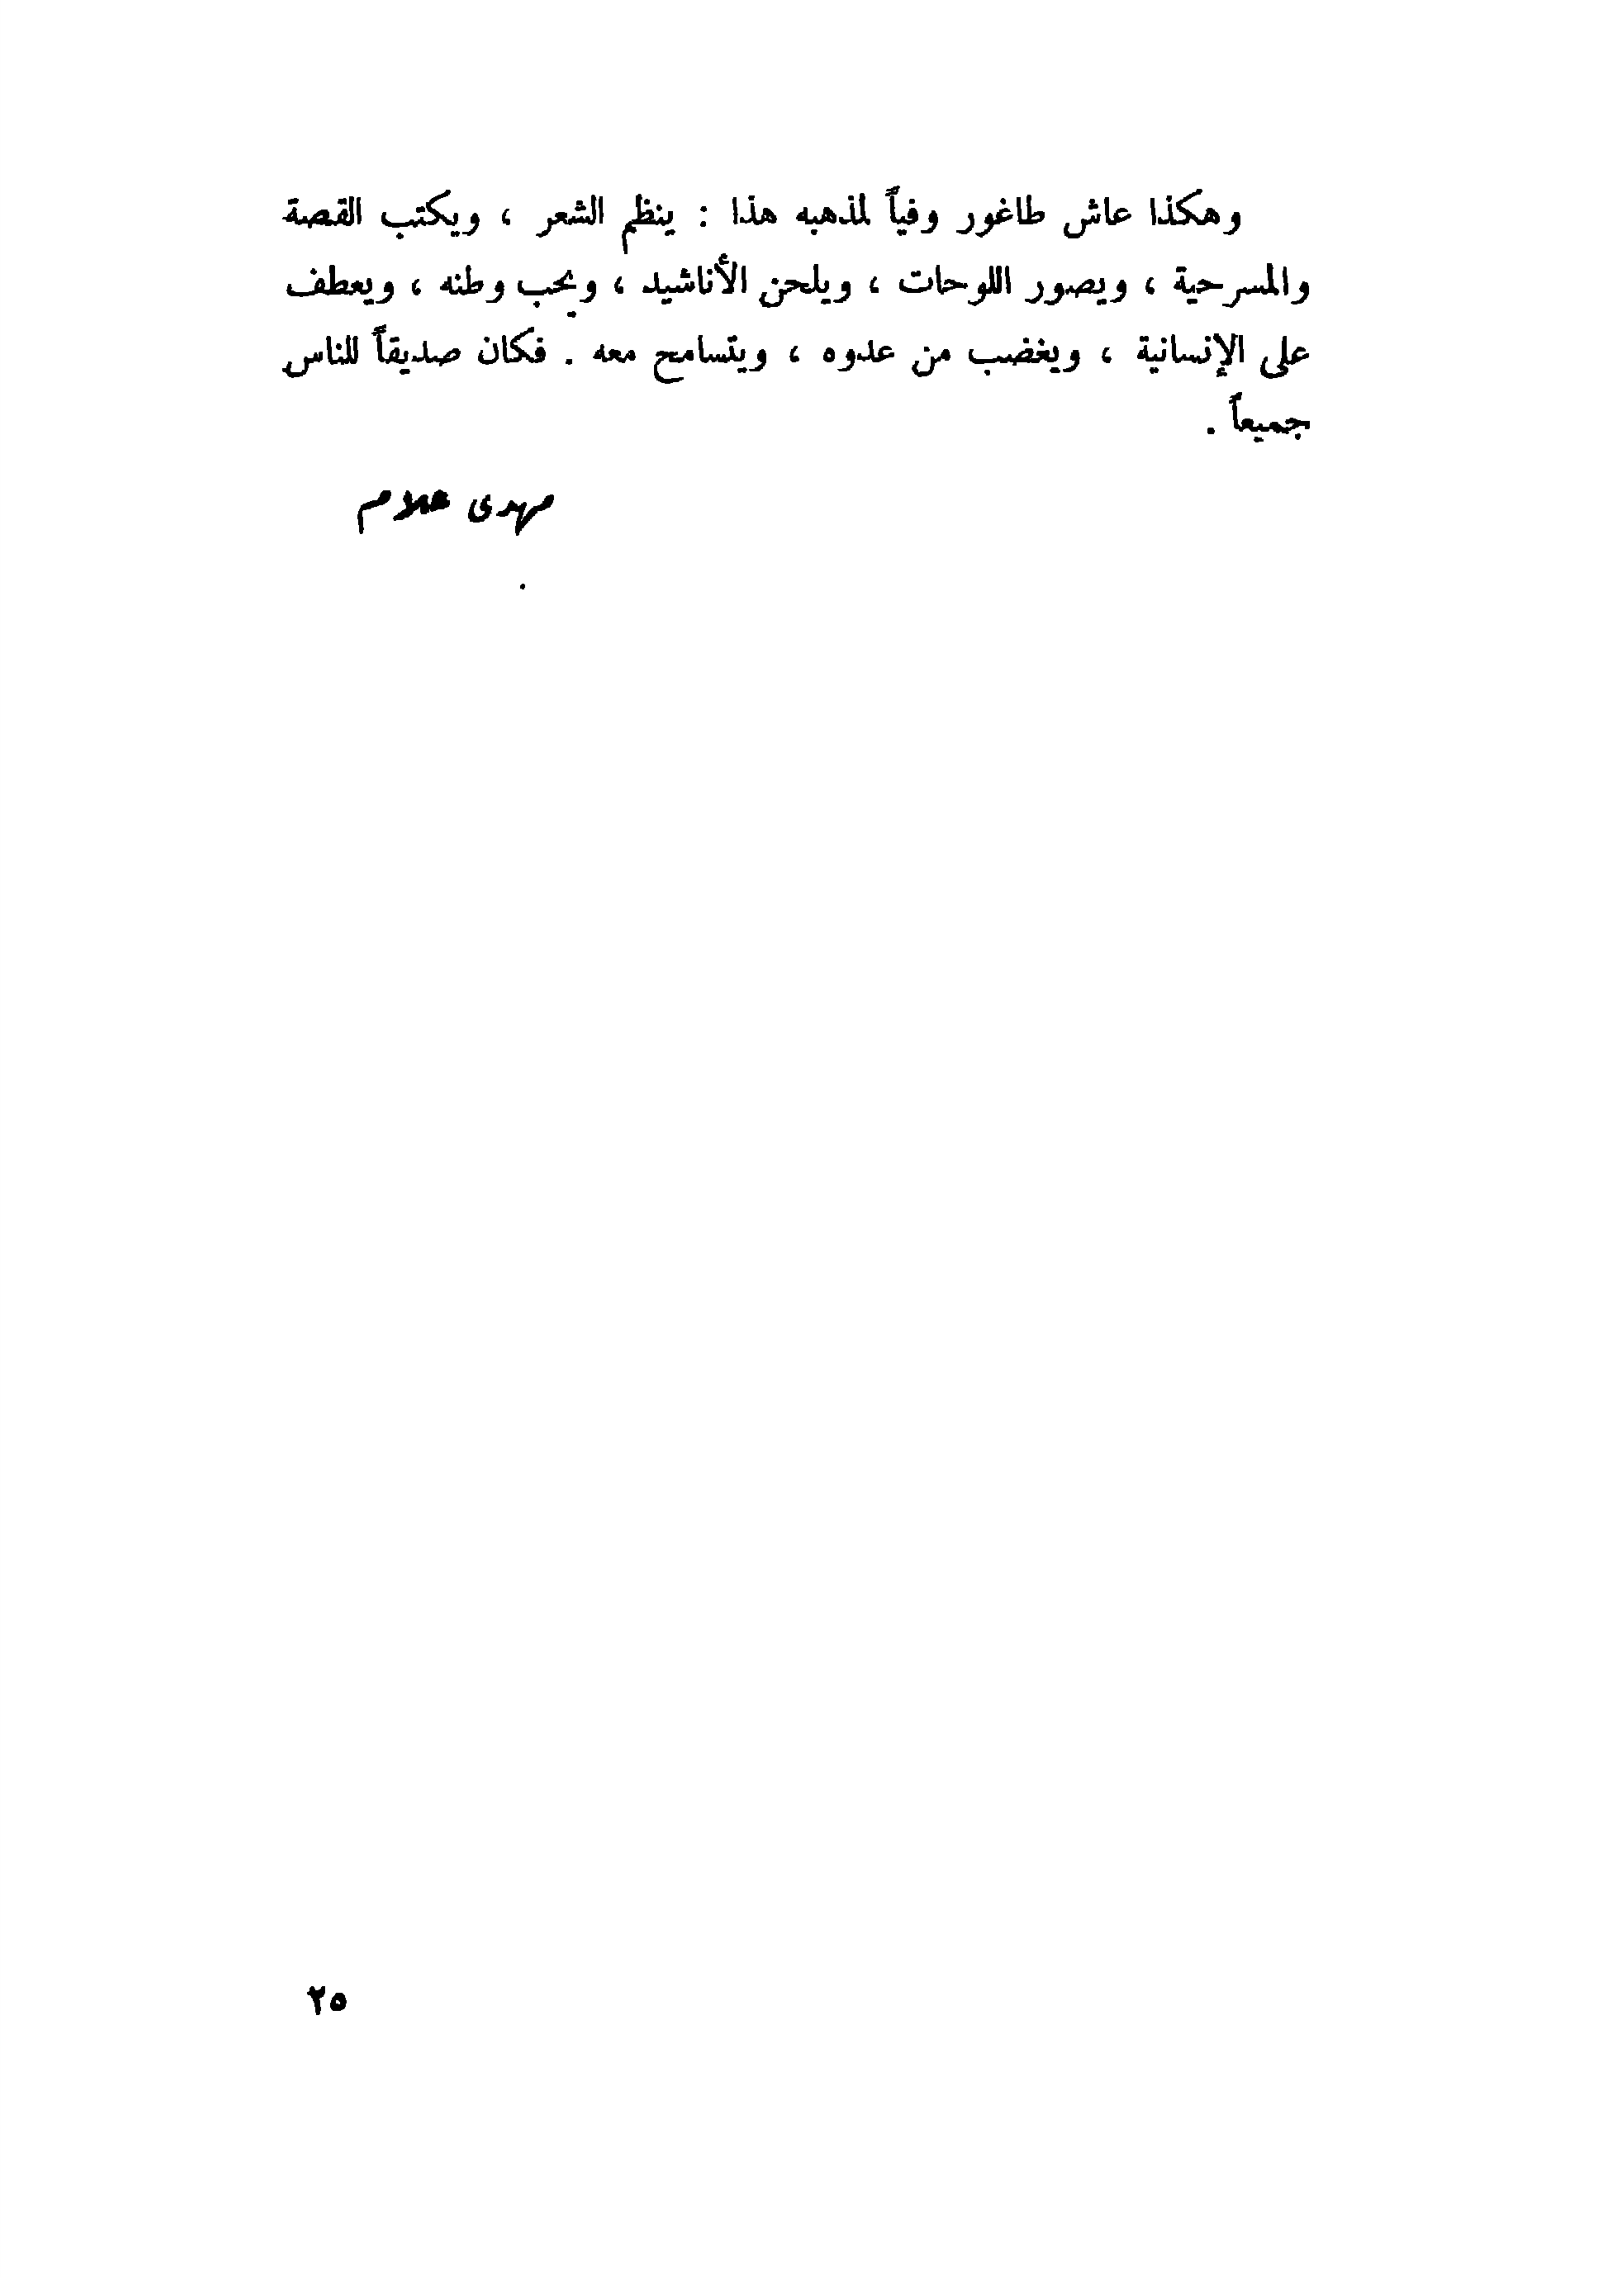 وهكذا عاش طاغور وفياً لمذهبه هذا : ينظم الشعر ، ويكتب القصة
والمسرحية ، ويصور اللوحات ، ويلحن الأناشيد ، ويحب وطنه ، ويعطف
على الإنسانية ، ويغضب من عدوه ، ويتسامح معه . فكان صديقاً للناس
جميعاً .
مهدى علام
٢٥